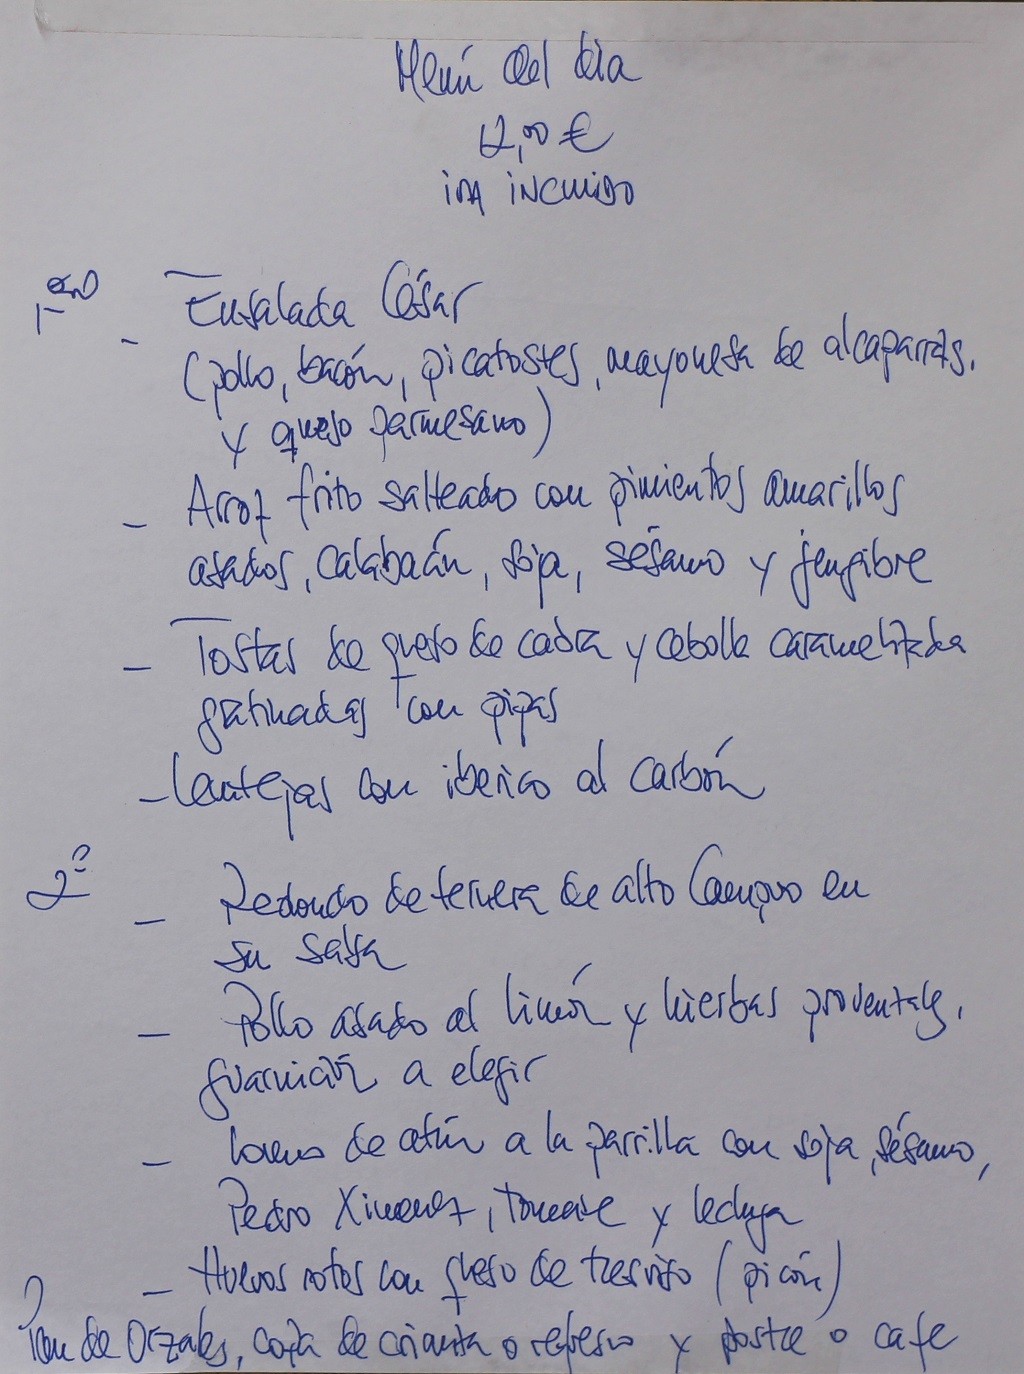 Menú del día
12,00 €
iVA iNCluiDO
1ero
- Ensalada César
(pollo, bacón, picatostes, mayonesa de alcaparras,
y queso parmesano)
- Arroz frito salteado con pimientos amarillos
asados, calabacín, soja, sésamo y jengibre
- Tostas de queso de cabra y cebolla caramelizada
gratinadas con pipas
- Lentejas con ibérico al carbón
2º
- Redondo de ternera de alto Campoo en
su salsa
- Pollo asado al limón y hierbas provenzales,
guarnición a elegir
- Lomo de atún a la parrilla con soja, sésamo,
Pedro Ximenez, tomate y lechuga
- Huevos rotos con queso de tresviso (picón)
Pan de Orzales, copa de crianza o refresco y postre o cafe